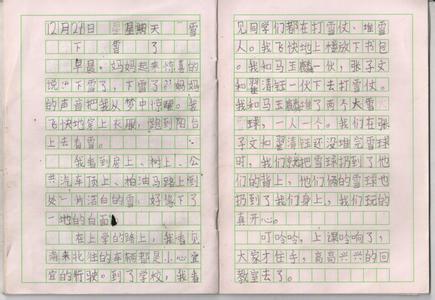 12月24日 星期天 雪
下雪了
早晨,妈妈起来惊喜的
说:“下雪了,下雪了!”妈妈
的声音把我从梦中惊醒。我
飞快地穿上衣服,跑到阳台
上去看雪。
我看到房上、树上、公
共汽车顶上、柏油马路上到
处一片洁白的雪,好像下了
一地的白面
在上学的路上,我看见
南来北往的车辆都是小心宜
宜的行驶。到了学校,我看
见同学们都在打雪仗、堆雪
人。我飞快地上楼放下书包
。我和马玉麟一伙,张子文
和翟清钰一伙下去打雪仗。
我和马玉麟堆了两个大雪
球,一人一个。我们在张
子文和翟清钰还没堆完雪球
时,我们就把雪球扔到了他
们的背上,他们俩的雪球也
扔到了我们身上,我们玩的
真开心。
叮呤呤,上课呤响了,
大家才住手,高高兴兴的回
教室去了。